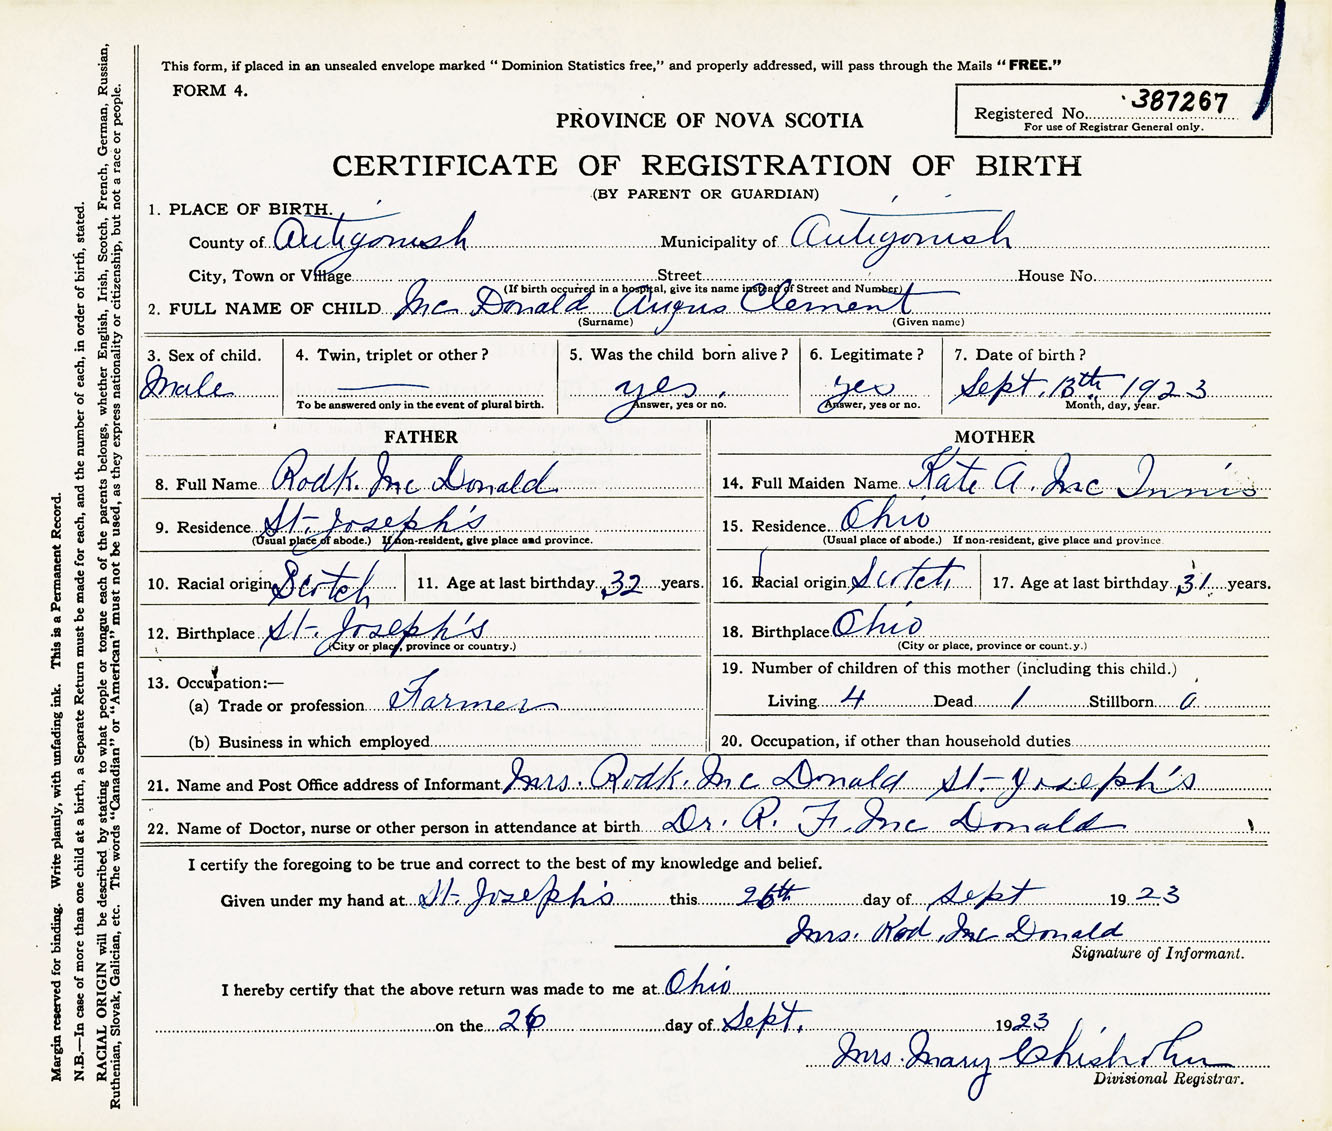 This form, if placed in an unsealed envelope marked “ Dominion Statistics free,” and properly addressed, will pass through the Mails “ FREE.”
FORM 4.
Registered No. 387267
For use of Registrar General only.
PROVINCE OF NOVA SCOTIA
CERTIFICATE OF REGISTRATION OF BIRTH
(BY PARENT OR GUARDIAN)
1. PLACE OF BIRTH.
County of Antigonish Municipality of Antigonish
City, Town or Village Street House No.
(If birth occurred in a hospital, give its name instead of Street and Number)
2. FULL NAME OF CHILD Mc Donald Angus Clement
(Surname) (Given name)
3. Sex of child. 4. Twin, triplet or other ? 5. Was the child born alive ? 6. Legitimate ? 7. Date of birth ?
Male — yes. yes Sept. 13th 1923
To be answered only in the event of plural birth. Answer, yes or no. Answer, yes or no. Month, day, year.
FATHER MOTHER
8. Full Name Rodk. Mc Donald 14. Full Maiden Name Kate A. Mc Innis
9. Residence St. Joseph's 15. Residence Ohio
(Usual place of abode.) If non-resident, give place and province. (Usual place of abode.) If non-resident, give place and province.
10. Racial origin Scotch 11. Age at last birthday 32 years. 16. Racial origin Scotch 17. Age at last birthday 31 years.
12. Birthplace St. Joseph's 18. Birthplace Ohio
(City or place, province or country.) (City or place, province or count.y.)
13. Occupation:— 19. Number of children of this mother (including this child.)
(a) Trade or profession Farmer Living 4 Dead 1 Stillborn 0
(b) Business in which employed 20. Occupation, if other than household duties
21. Name and Post Office address of Informant Mrs. Rodk. Mc Donald St. Joseph's
22. Name of Doctor, nurse or other person in attendance at birth Dr. R. F. Mc Donald
I certify the foregoing to be true and correct to the best of my knowledge and belief.
Given under my hand at St. Joseph's this 26th day of Sept 1923
Mrs. Rod. Mc Donald
Signature of Informant.
I hereby certify that the above return was made to me at Ohio
on the 26 day of Sept. 1923
Mrs. Mary Chisholm
Divisional Registrar.
Margin reserved for binding. Write plainly, with unfading ink. This is a Permanent Record.
N.B.—In case of more than one child at a birth, a Separate Return must be made for each, and the number of each, in order of birth, stated.
RACIAL ORIGIN will be described by stating to what people or tongue each of the parents belongs, whether English, Irish, Scotch, French, German, Russian,
Ruthenian, Slovak, Galician, etc. The words “Canadian” or “American” must not be used, as they express nationality or citizenship, but not a race or people.